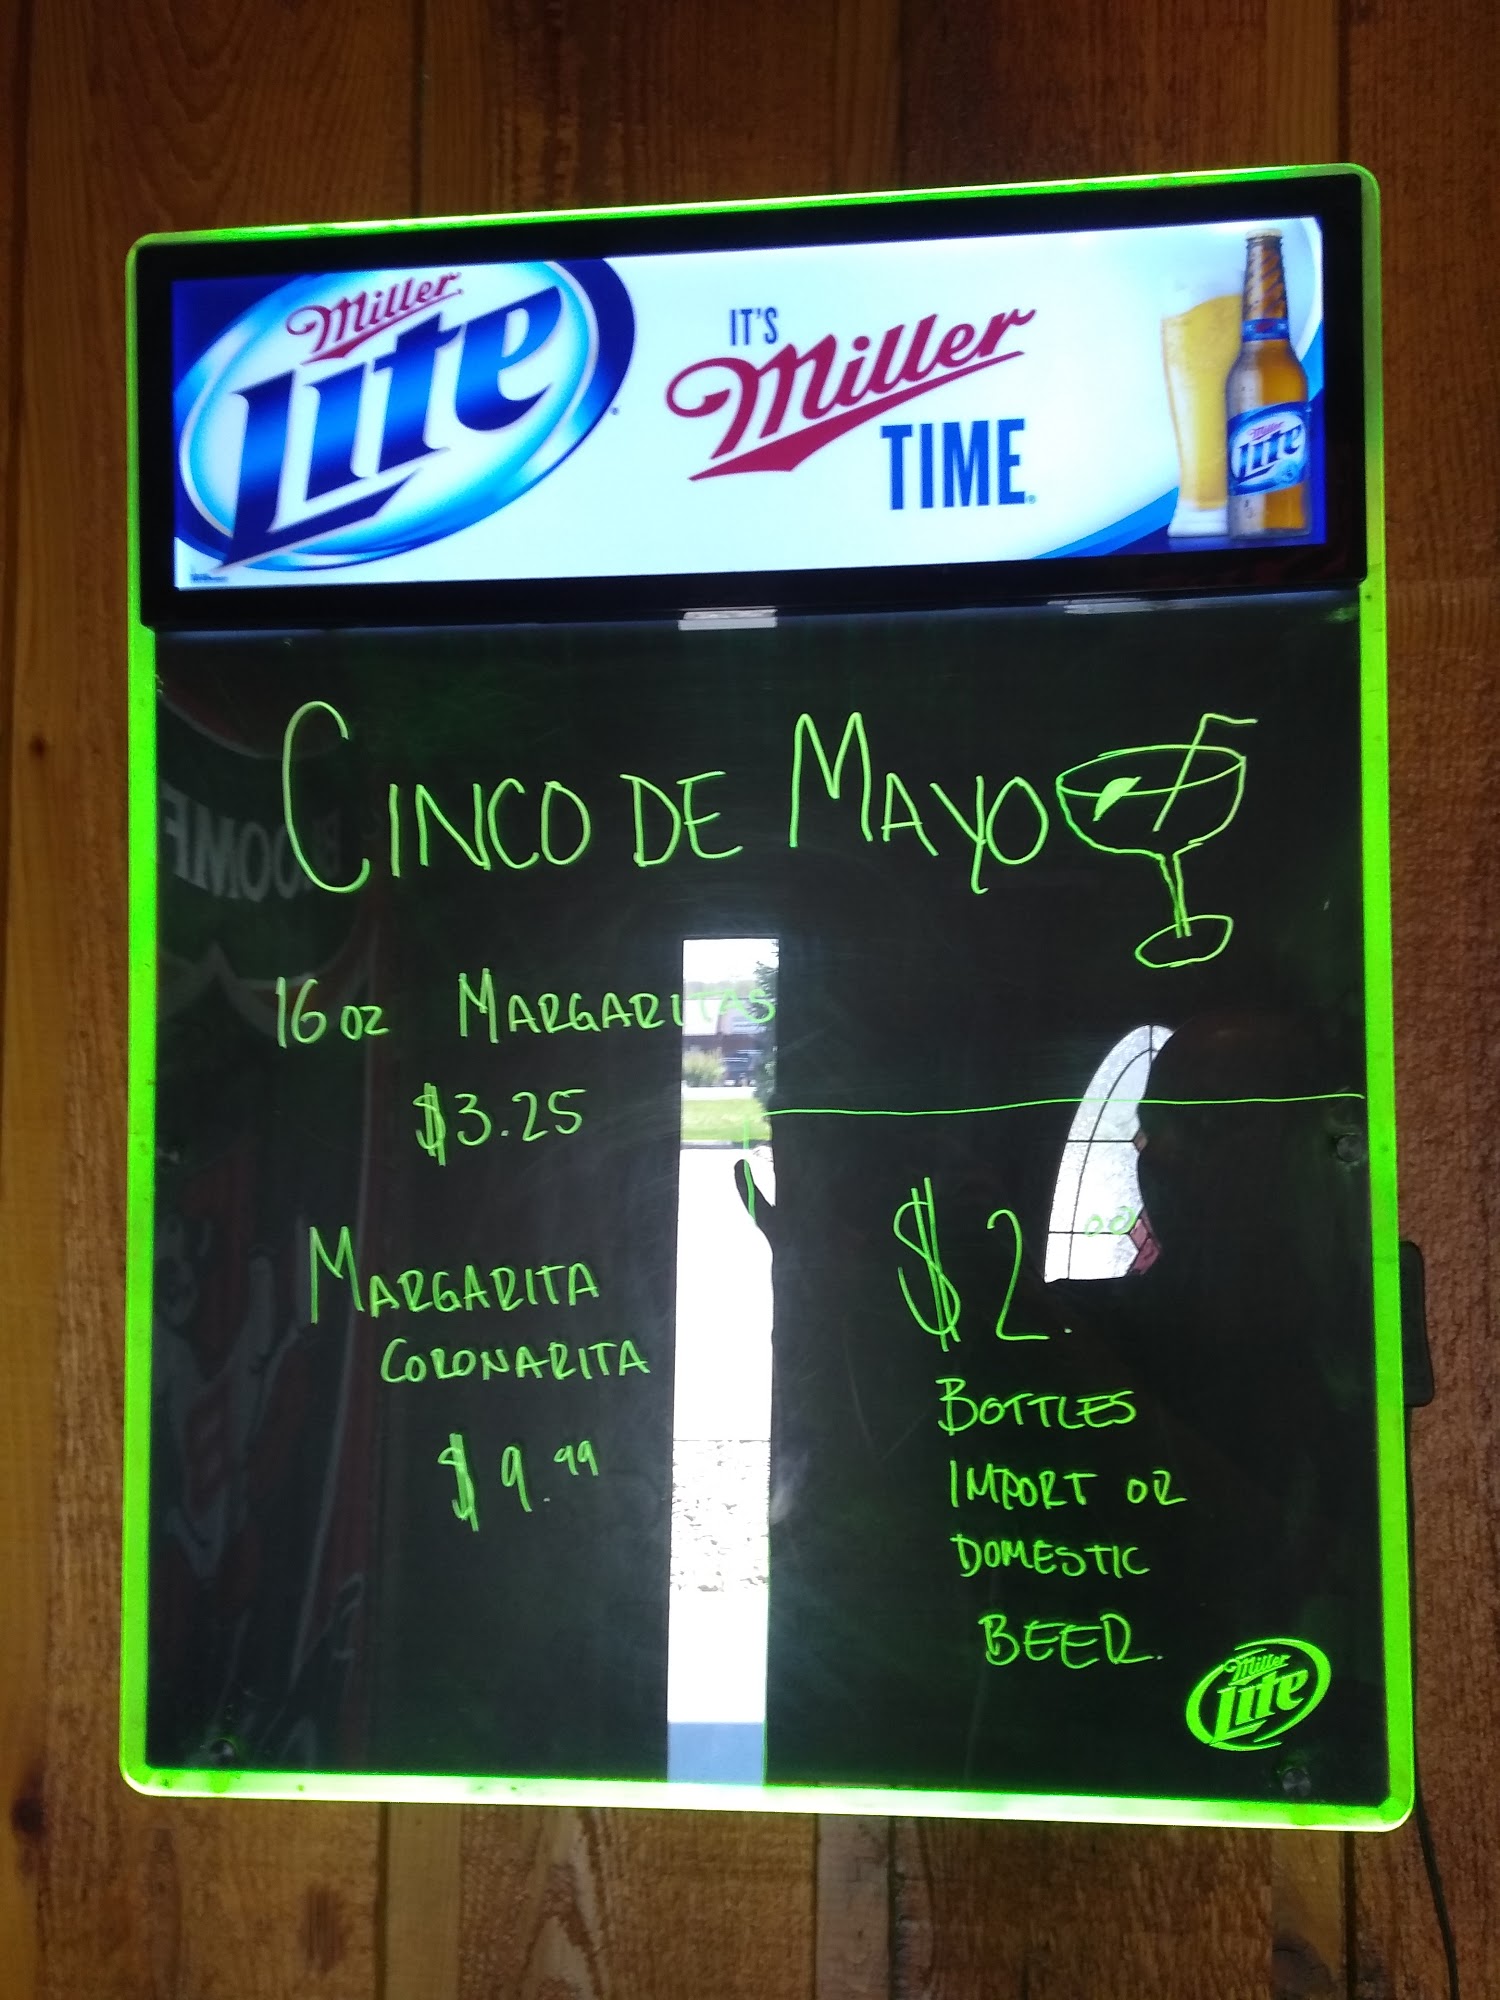 Miller
Lite
IT'S
Miller
TIME
Miller
Lite
CINCO DE MAYO
16 OZ MARGARITAS
$3.25
MARGARITA
CORONARITA
$9.99
$2.00
BOTTLES
IMPORT OR
DOMESTIC
BEER.
Miller
Lite